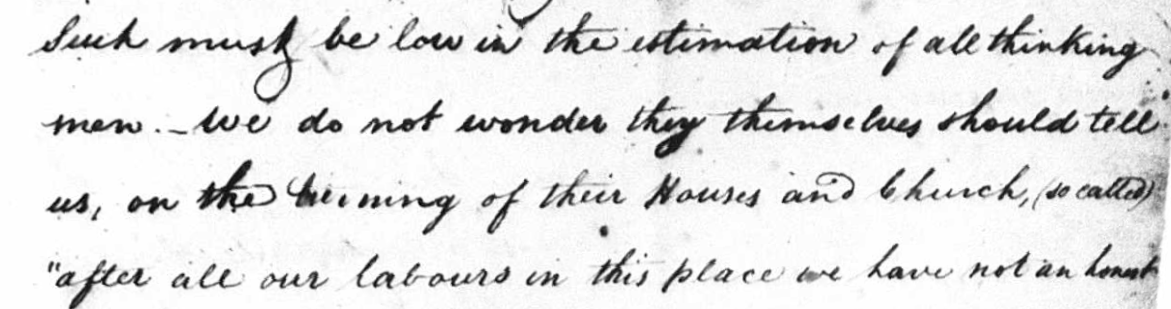 Such must be low in the estimation of all thinking
men. – We do not wonder they themselves should tell
us, on the burning of their Houses and Church, (so called)
"after all our labours in this place we have not an honest